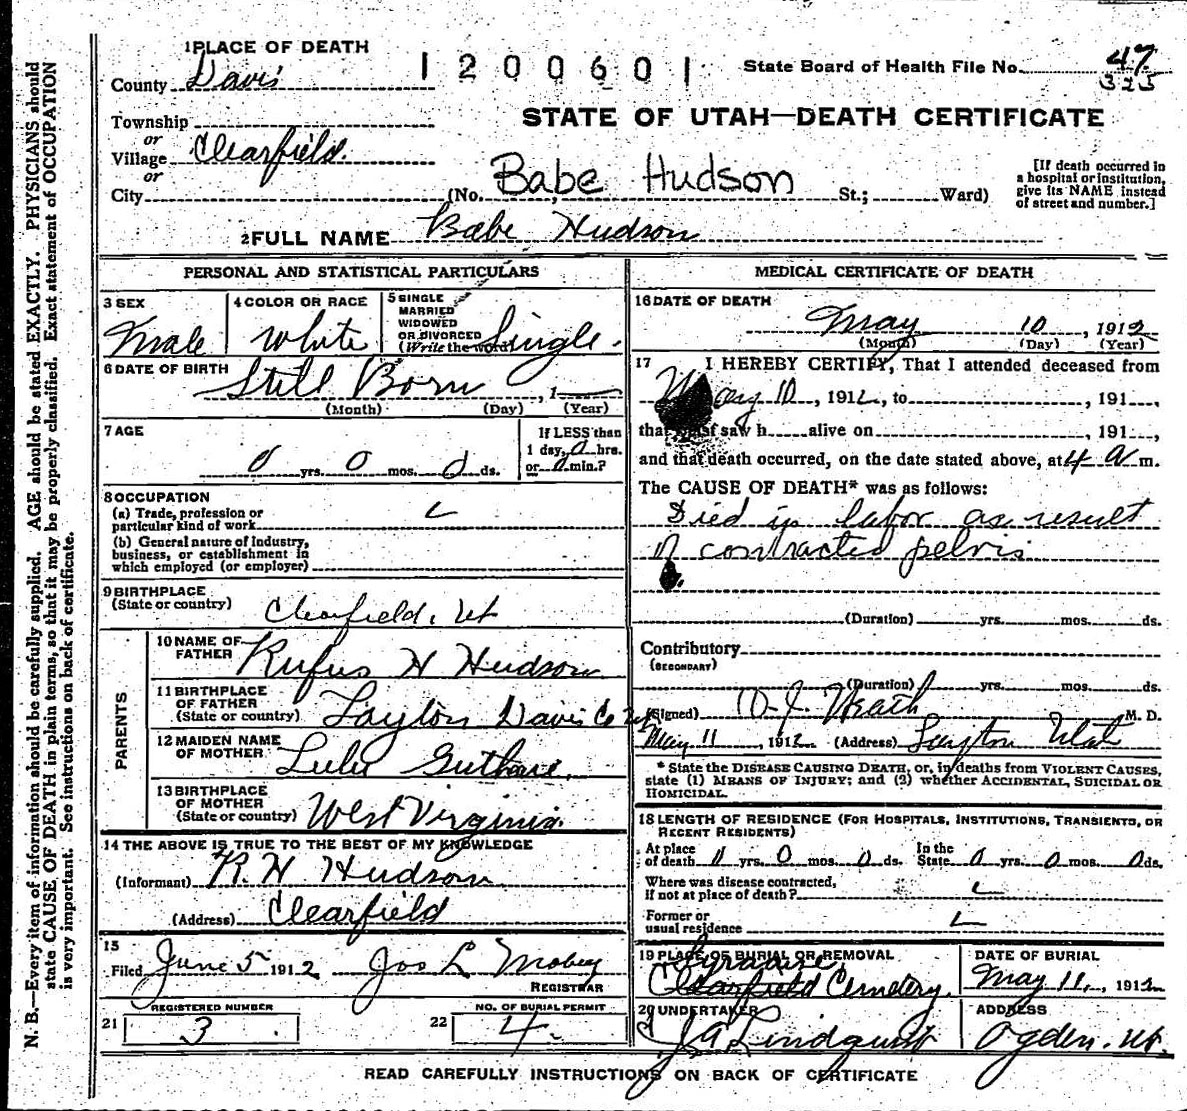 N. B.—Every item of information should be carefully supplied. AGE should be stated EXACTLY. PHYSICIANS should
state CAUSE OF DEATH in plain terms, so that it may be properly classified. Exact statement of OCCUPATION
is very important. See instructions on back of certificate.
1 PLACE OF DEATH
County Davis
1200601
State Board of Health File No. 47
325
STATE OF UTAH—DEATH CERTIFICATE
Township
or
Village Clearfield.
or
City (No. Babe Hudson St.; Ward)
[If death occurred in
a hospital or institution,
give its NAME instead
of street and number.]
2 FULL NAME Babe Hudson
PERSONAL AND STATISTICAL PARTICULARS
3 SEX
Male
4 COLOR OR RACE
White
5 SINGLE
MARRIED
WIDOWED
OR DIVORCED
(Write the word) Single.
6 DATE OF BIRTH
Still Born , 1
(Month) (Day) (Year)
7 AGE
0 yrs. 0 mos. 0 ds.
If LESS than
1 day, 0 hrs.
or 0 min.?
8 OCCUPATION
(a) Trade, profession or
particular kind of work
(b) General nature of Industry,
business, or establishment in
which employed (or employer)
9 BIRTHPLACE
(State or country) Clearfield, Ut
PARENTS
10 NAME OF
FATHER Rufus H Hudson
11 BIRTHPLACE
OF FATHER
(State or country) Layton Davis Co Ut
12 MAIDEN NAME
OF MOTHER Lulu
13 BIRTHPLACE
OF MOTHER
(State or country) West Virginia.
14 THE ABOVE IS TRUE TO THE BEST OF MY KNOWLEDGE
(Informant) R. H Hudson
(Address) Clearfield
15
Filed June 5 1912 Jos L
REGISTRAR
REGISTERED NUMBER
21 3
NO. OF BURIAL PERMIT
22 4
MEDICAL CERTIFICATE OF DEATH
16 DATE OF DEATH
May 10 , 1912
(Month) (Day) (Year)
17 I HEREBY CERTIFY, That I attended deceased from
May 10 , 1912, to , 191 ,
that I last saw h alive on , 191 ,
and that death occurred, on the date stated above, at 4 a m.
The CAUSE OF DEATH* was as follows:
Died in labor as result
of contracted pelvis
(Duration) yrs. mos. ds.
Contributory
(SECONDARY)
(Duration) yrs. mos. ds.
(Signed) Heath M. D.
May 11 , 1912 (Address) Layton Utah
* State the DISEASE CAUSING DEATH, or, in deaths from VIOLENT CAUSES,
state (1) MEANS OF INJURY; and (2) whether ACCIDENTAL, SUICIDAL OR
HOMICIDAL.
18 LENGTH OF RESIDENCE (FOR HOSPITALS, INSTITUTIONS, TRANSIENTS, OR
RECENT RESIDENTS)
At place
of death 0 yrs. 0 mos. 0 ds.
In the
State 0 yrs. 0 mos. 0 ds.
Where was disease contracted,
if not at place of death?
Former or
usual residence
19 PLACE OF BURIAL OR REMOVAL
Syracuse,
Clearfield Cemetery.
DATE OF BURIAL
May 11, , 1912
20 UNDERTAKER
Lindquist
ADDRESS
Ogden. Ut.
READ CAREFULLY INSTRUCTIONS ON BACK OF CERTIFICATE